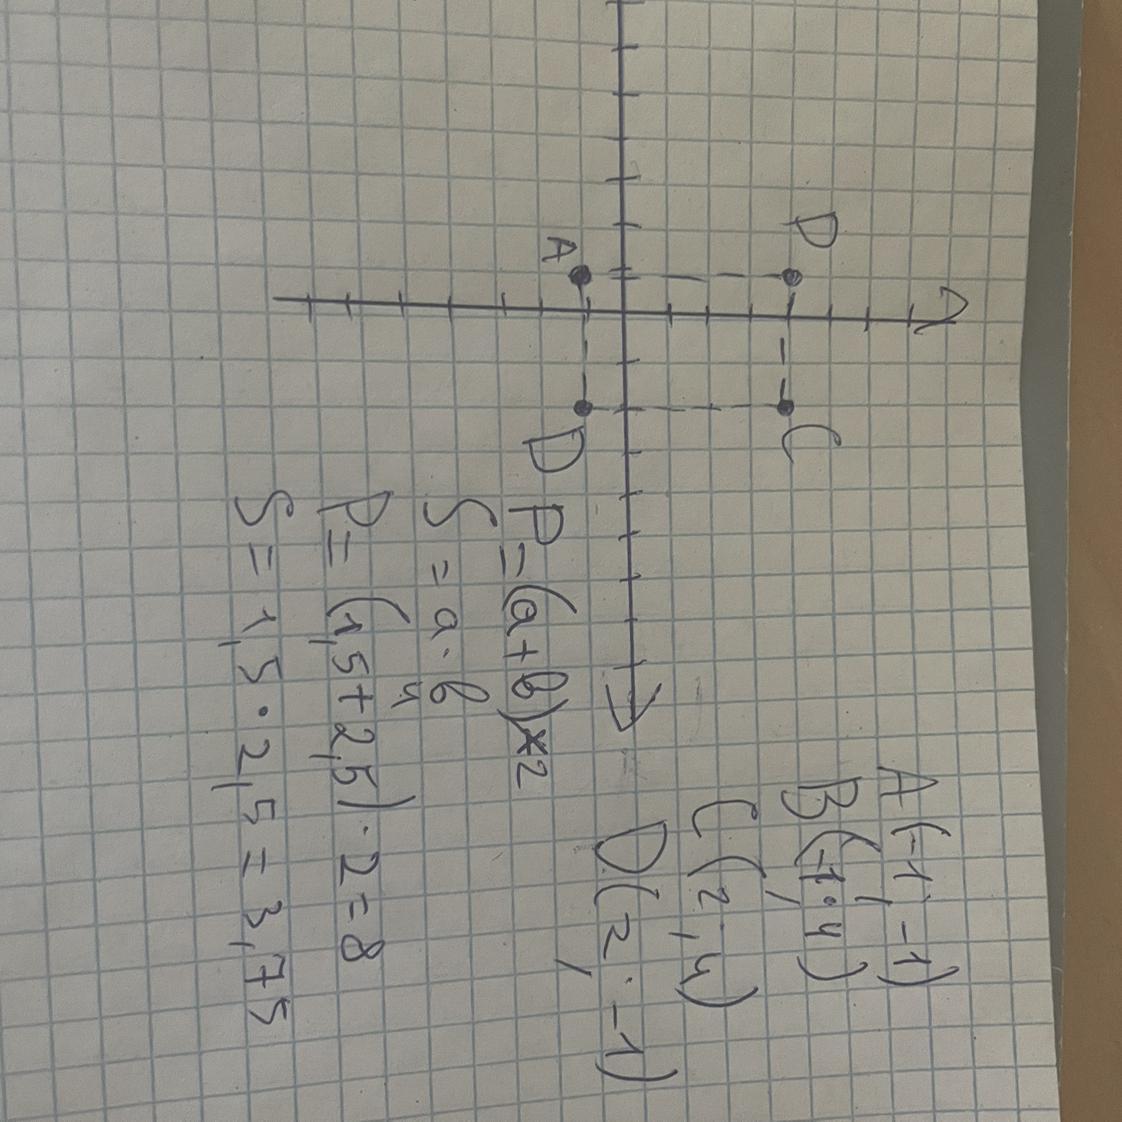 A(-1; -1)
B(-1; 4)
C(2; 4)
D(2; -1)
D
C
A
D
P=(a+b)×2
S=a·b
4
P=(1,5+2,5)·2=8
S=1,5·2,5=3,75